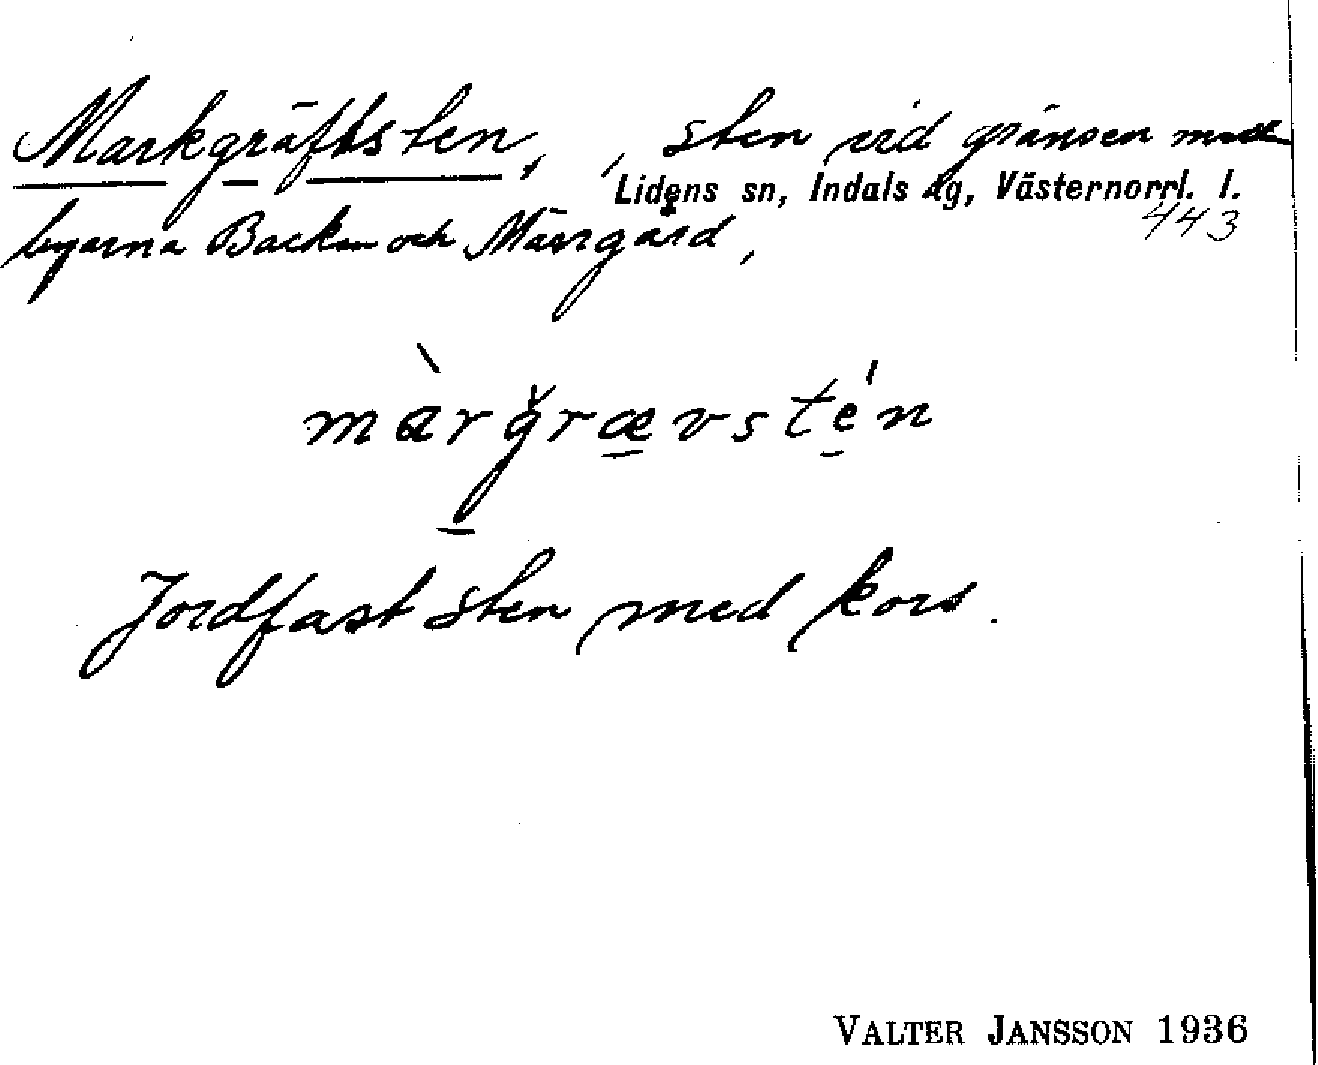 Markgräftsten, , sten vid gränsen med
Lidens sn, Indals tg, Västernorrl. l.
443
byarna Backen och Märrgård,
màrgrævstén
Jordfast sten med kors.
VALTER JANSSON 1936